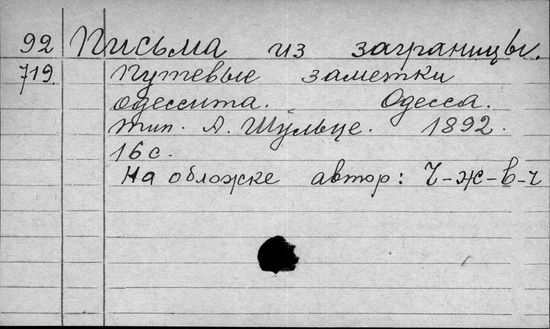 92 Письма из заграницы.
719. Путевые заметки
одессита. Одесса.
тип. А. Шульце. 1892.
16 с.
На обложке автор: Ч-ж-в-ч